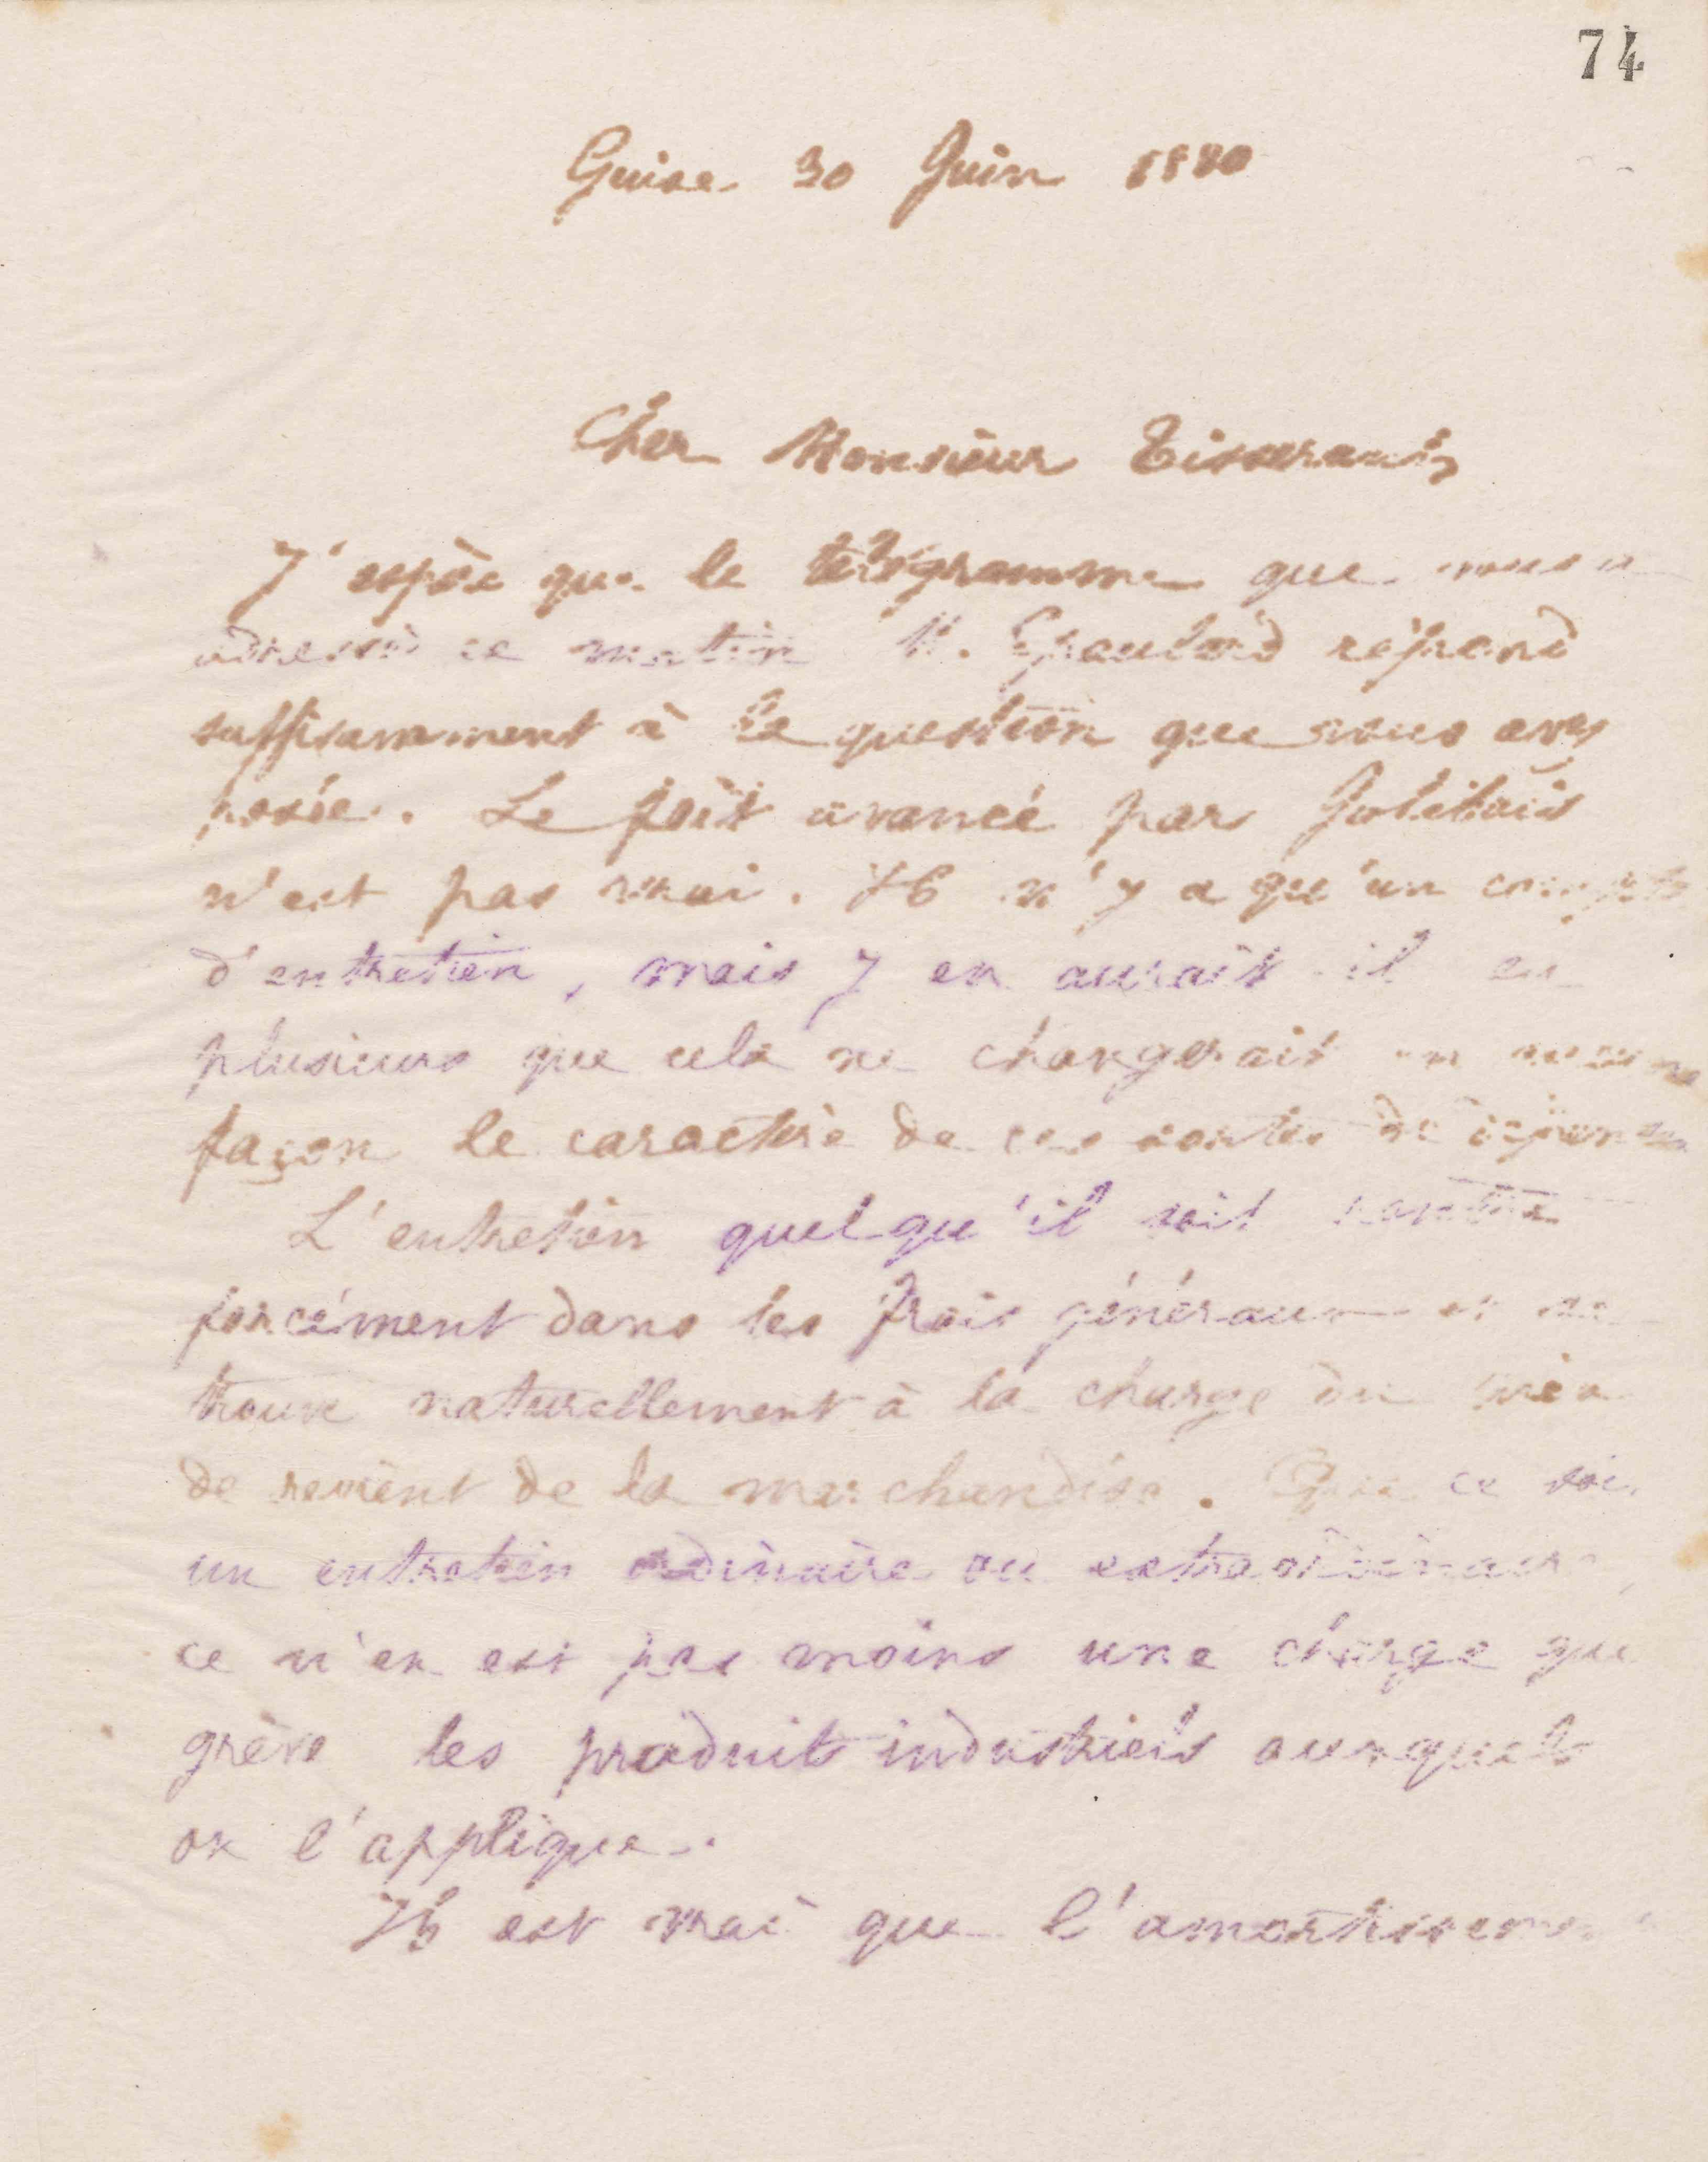 74
Guise 30 Juin 1880
Cher Monsieur Tisserant,
J'espère que le télégramme que vous a
adressé ce matin M. Epaulard répond
suffisamment à la question que vous avez
posée. Le fait avancé par
n'est pas vrai. Il n'y a qu'un compte
d'entretien, mais y en aurait-il eu
plusieurs que cela ne changerait en aucune
façon le caractère de ces sortes de dépenses
L'entretien quelqu'il soit rentre
forcément dans les frais généraux et se
trouve naturellement à la charge du prix
de revient de la marchandise. Que ce soit
un entretien ordinaire ou extraordinaire,
ce n'en est pas moins une charge qui
grève les produits industriels auxquels
on l'applique.
Il est vrai que l'amortissement